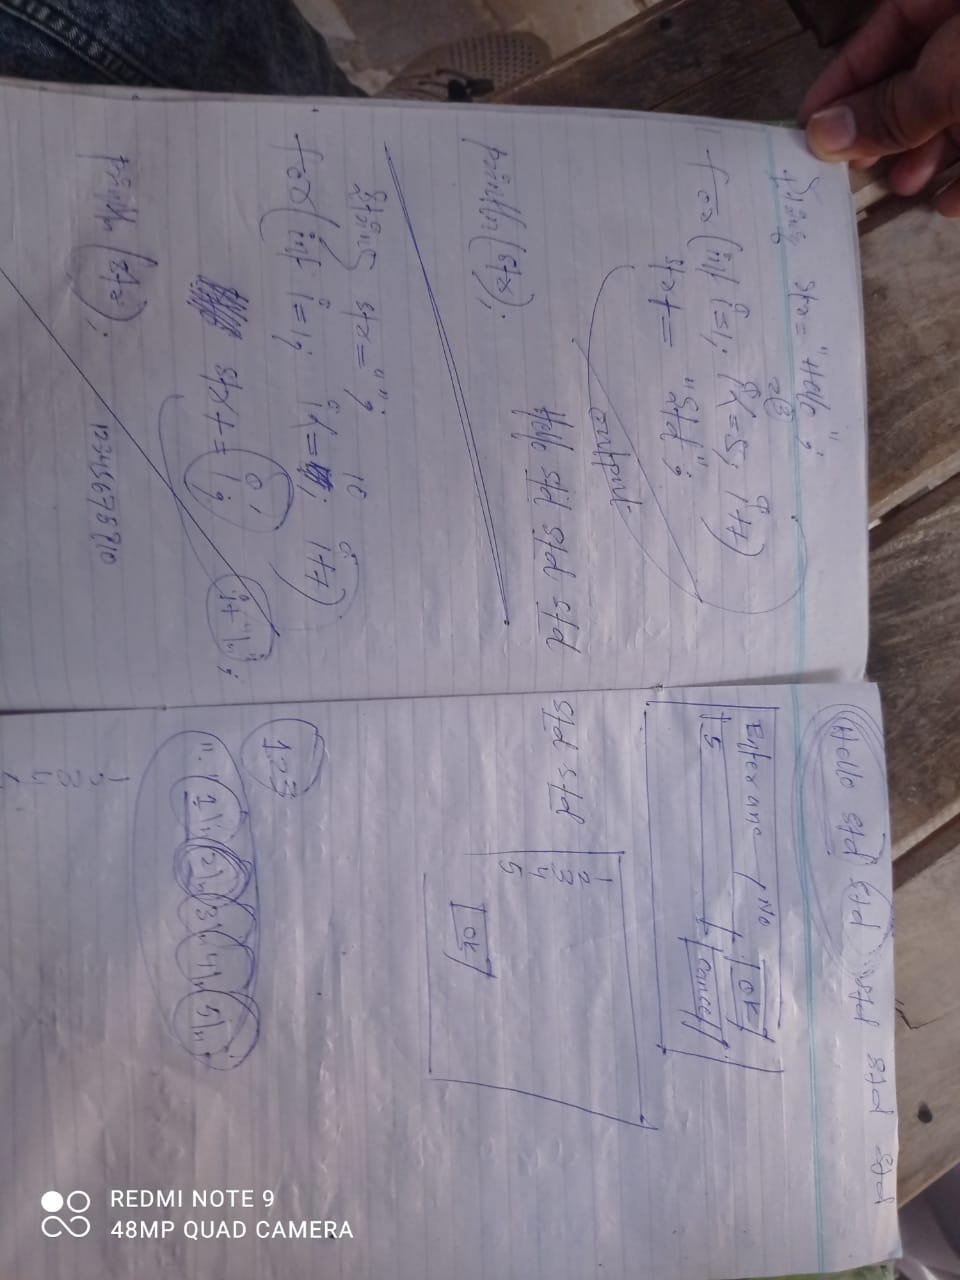 String str = "Hello";
2 3
for (int i=1; i<=5; i++)
str+= "Std";
output
Hello std std std
println(str);
String str = " ";
10
for (int i=1; i<= ; i++)
str+= i; i+"\n";
println(str);
12345678910
Hello std std std std std
Enter any No
OK
5
Cancel
std std
1
2
3
4
5
OK
123
" 1\n 2\n 3\n 4\n 5\n
1
2
3
4
REDMI NOTE 9
48MP QUAD CAMERA